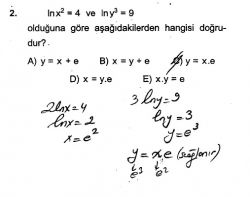 2. lnx² = 4 ve lny³ = 9
olduğuna göre aşağıdakilerden hangisi doğru-
dur?
A) y = x + e B) x = y + e C) y = x.e
D) x = y.e E) x.y = e
2lnx=4
lnx=2
x=e²
3lny=9
lny=3
y=e³
y=x.e (sağlanır)
e³ e²